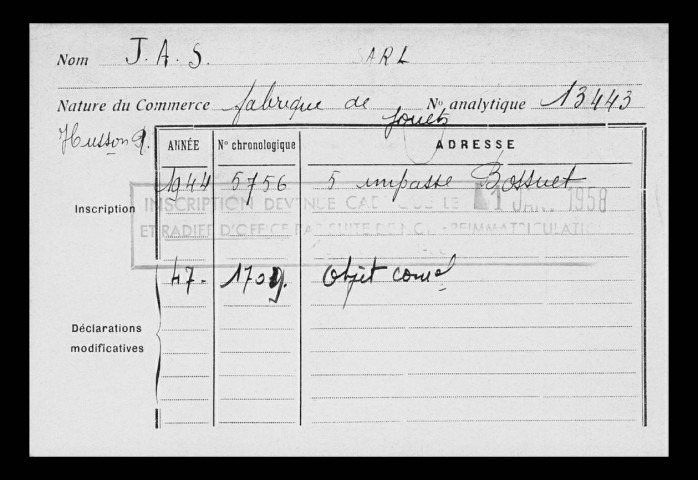 Nom J. A. S. SARL
Nature du Commerce fabrique de jouets No analytique 13443
Husson
ANNÉE No chronologique ADRESSE
Inscription 1944 5756 5 impasse Bossuet
INSCRIPTION DEVENUE CADUQUE LE 1 JAN. 1958
ET RADIEE D'OFFICE PAR SUITE DE NON-REIMMATRICULATION
47. 1709. Objet comal
Déclarations
modificatives